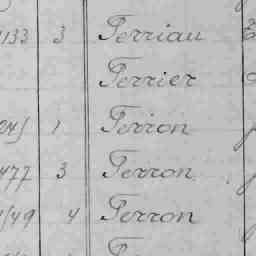 1133 3 Perriau
Perrier
1 Perron
477 3 Perron
49 4 Perron